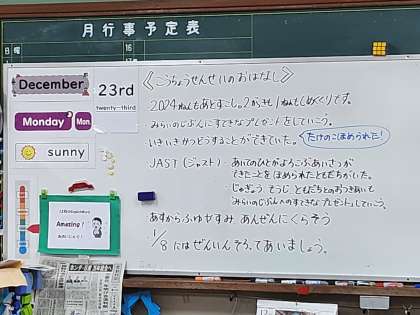 月行事予定表
日 曜
16
December
23rd
twenty-third
Monday
Mon.
sunny
Amazing!
《こうちょうせんせいのおはなし》
2024ねんもあとすこし。2がっきも1ねんもしめくくりです。
みらいのじぶんにすてきなプレゼントをしていこう。
いきいきかつどうすることができていた。
たけのこほめられた!
JAST (ジャスト) あいてのひとがよろこぶあいさつが
できたことを ほめられたともだちがいた。
じゅぎょう そうじ ともだちとのおつきあいで
みらいのじぶんへのすてきなプレゼントしていこう。
あすからふゆやすみ あんぜんにくらそう
1/8 にはぜんいんそろってあいましょう。